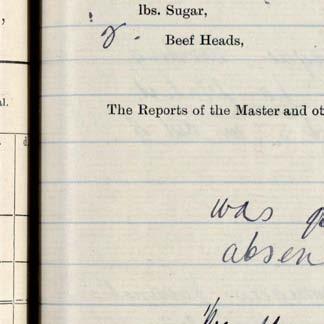 lbs. Sugar,
2 Beef Heads,
al.
The Reports of the Master and ot
was
absen